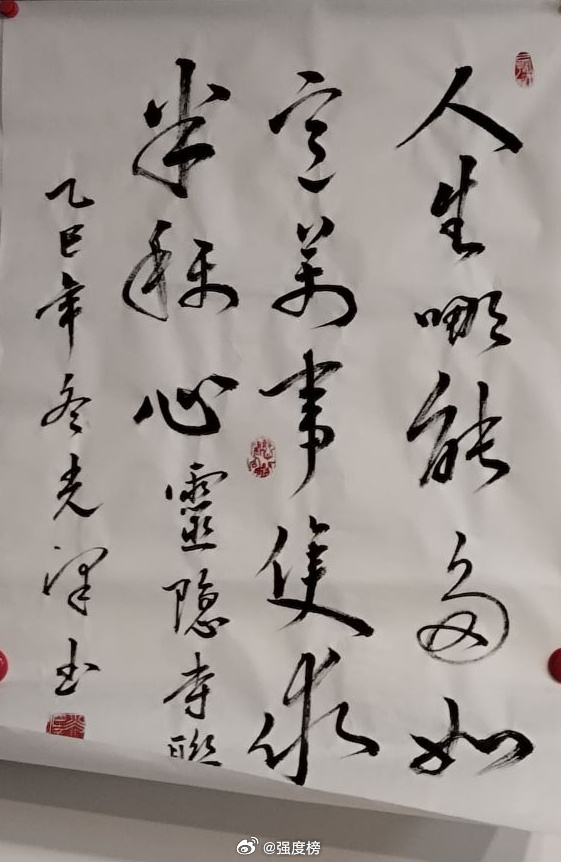 人生哪能多如
意萬事隻求
半称心 靈隐寺聯
乙巳年冬光泽书
@强度榜